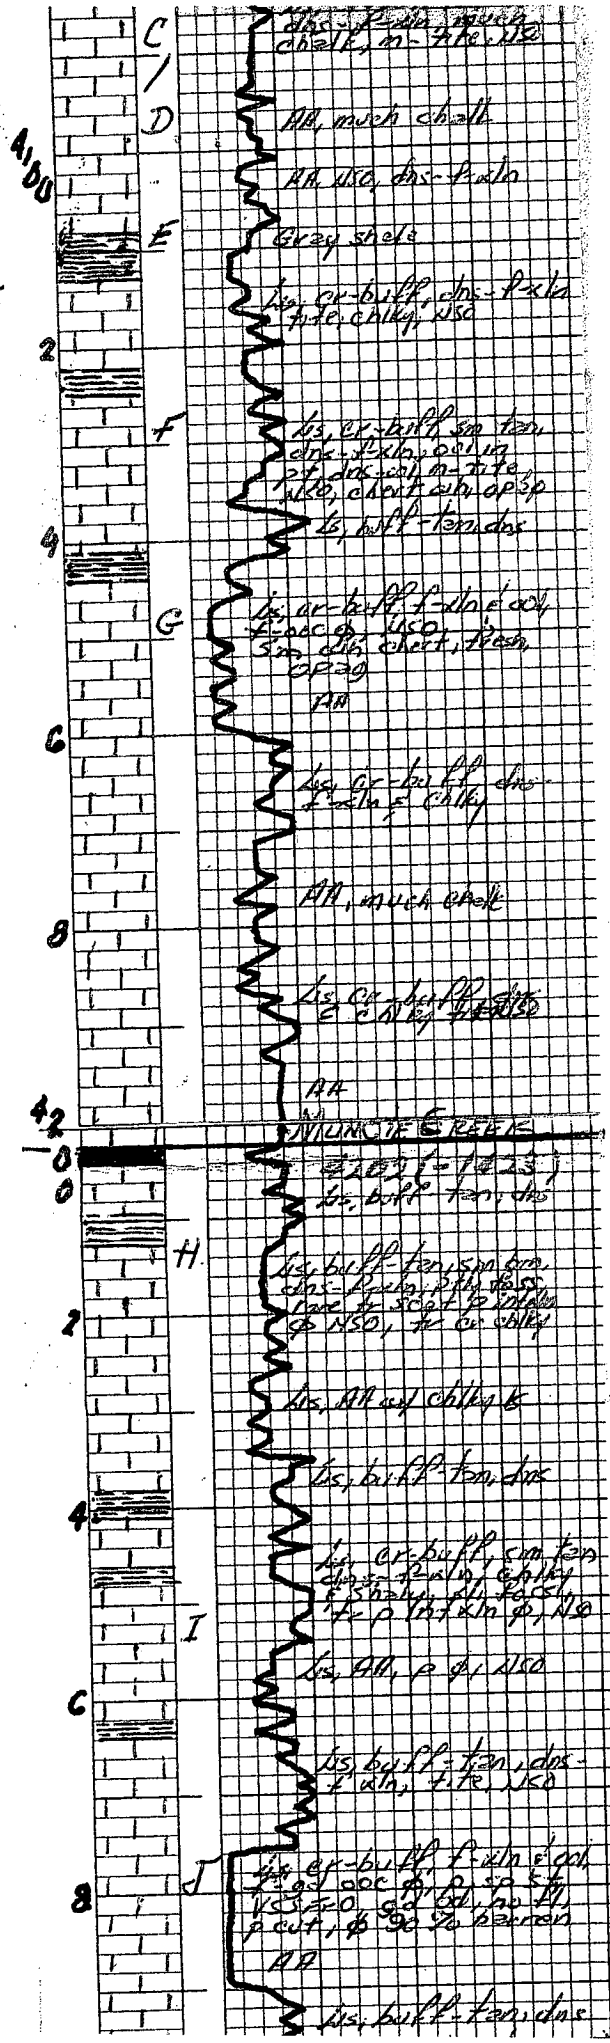 dns-f-xln, much
chalk, m-tite, NSO
C
/
D
AA, much chalk
41
00
AA, NSO, dns-f-xln
E
Gray shale
Ls, cr-buff, dns-f-xln
tite, chlky, NSO
2
F
Ls, cr-buff sm tan,
dns-f-xln, ool in
pt, dns-ool, m-tite
NSO, chert wh, opaq
Ls, buff-tan, dns
4
G
Ls, cr-buff, f-xln & ool,
f-ooc ф, NSO
sm wh chert, fresh,
opaq
AA
6
Ls, cr-buff dns-
f-xln & chlky
AA, much chalk
8
Ls, cr-buff, dns
& chlky NSO
AA
42
00
MUNCIE CREEK
4202 (-1423)
Ls, buff-tan, dns
H
Ls, buff-tan, sm brn,
dns-f-xln, foss,
rare tr scat p intxln
ф NSO, tr cr chlky
2
Ls, AA w/ chlky ls
Ls, buff-tan, dns
4
Ls, cr-buff, sm tan
dns-f-xln, chlky
& shaly, foss,
tr p intxln ф, NSO
I
Ls, AA, p ф, NSO
6
Ls, buff-tan, dns-
f xln, tite, NSO
J
Ls, cr-buff, f-xln & ool,
f-gd ooc ф, p sp st,
VSSFO, gd od, no fl,
p cut, ф 90% barren
8
AA
Ls, buff-tan, dns